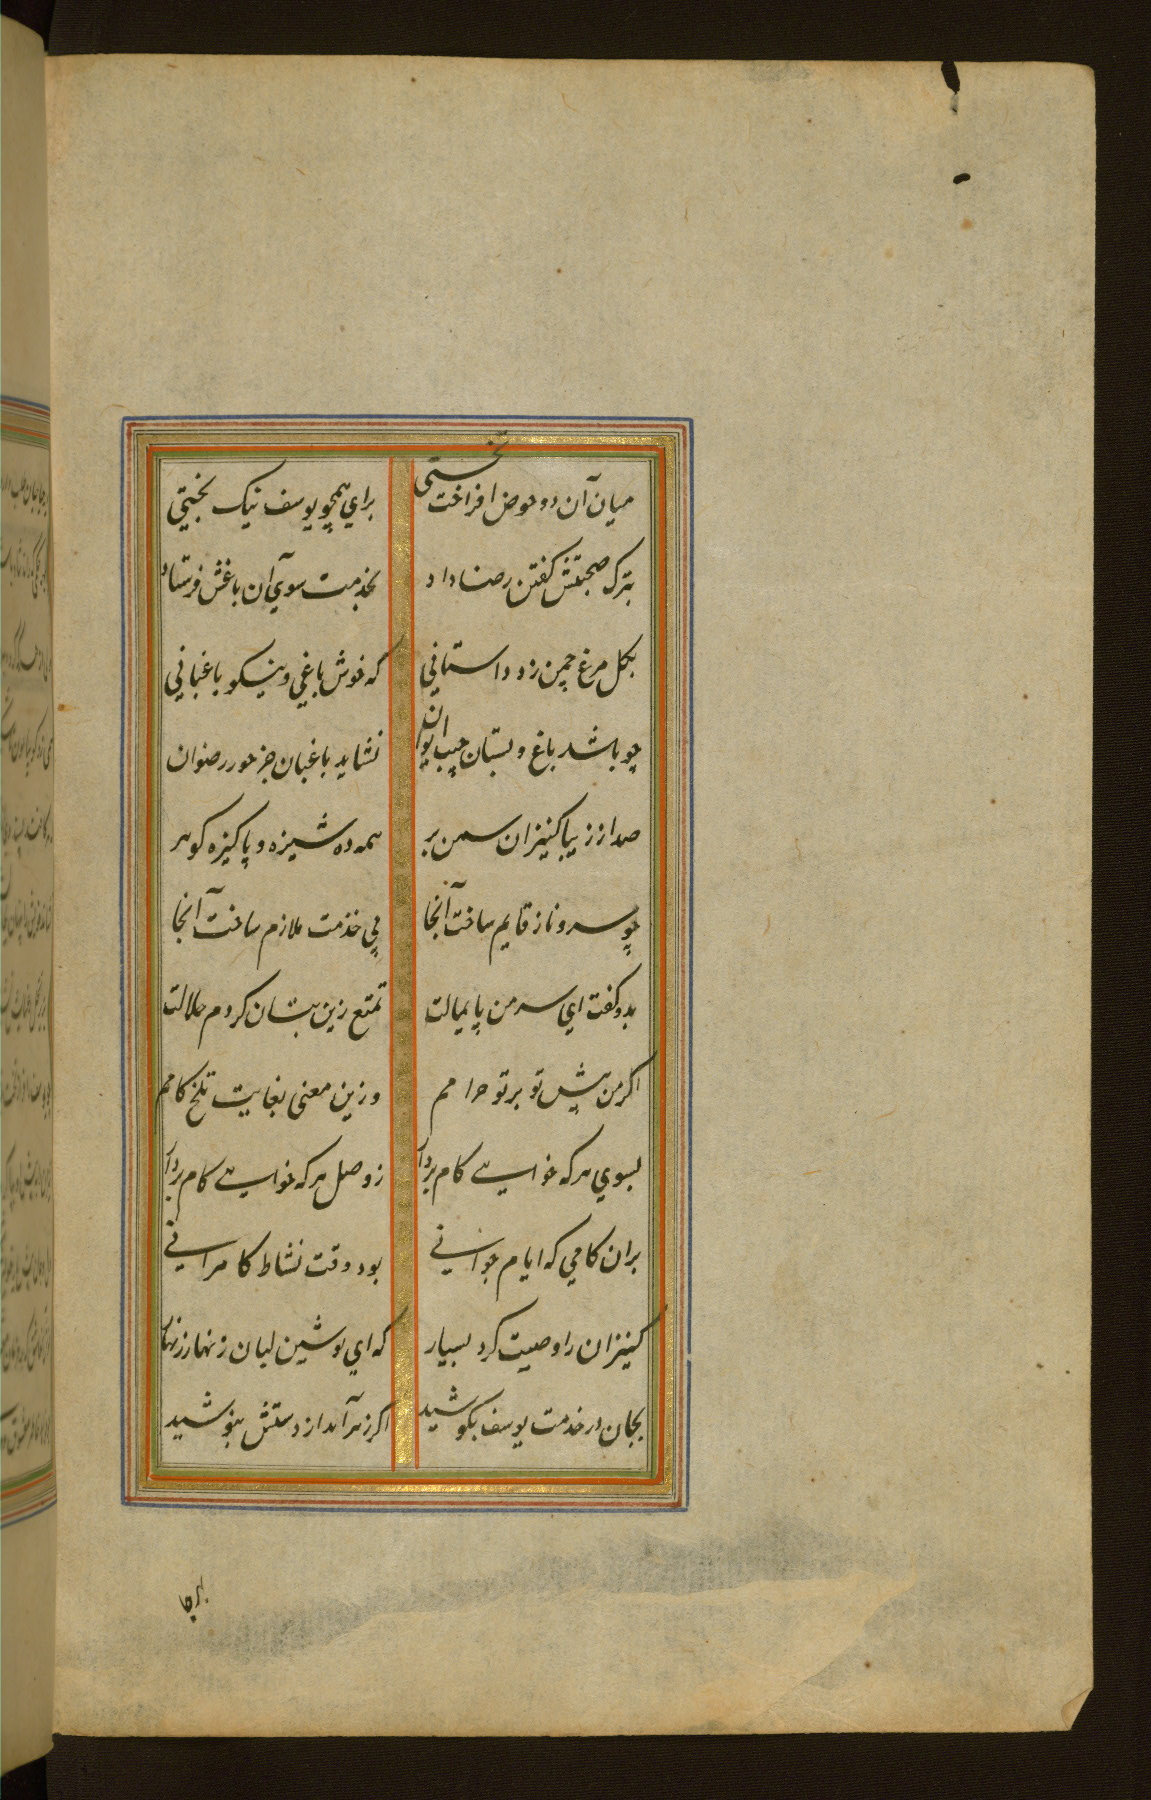 میان آن دو حوض افراخت تختی برای همچو یوسف نیک بختی
بترک صحبتش کفتن رضا داد بخدمت سوی آن باغش فرستاد
بکل مرغ چمن زد داستانی که خوش باغی و نیکو باغبانی
چو باشد باغ و بستان نشاید باغبان جز حور رضوان
صد از زیبا کنیزان سمن بر همه دوشیزه و پاکیزه کوهر
چو سرو ناز قایم ساخت آنجا پی خدمت ملازم ساخت آنجا
بدو کفت ای سر من پایمالت تمتع زین بتان کردم حلالت
اکر من پیش تو بر تو حرامم وزین معنی بغایت تلخ کامم
بسوی هر که خواهی کام بردار ز وصل هر که خواهی کام بردار
بران کامی که ایام جوانی بود وقت نشاط کامرانی
کنیزان را وصیت کرد بسیار که ای نوشین لبان زنهار زنهار
بجان در خدمت یوسف بکوشید اکر زهر آید از دستش بنوشید